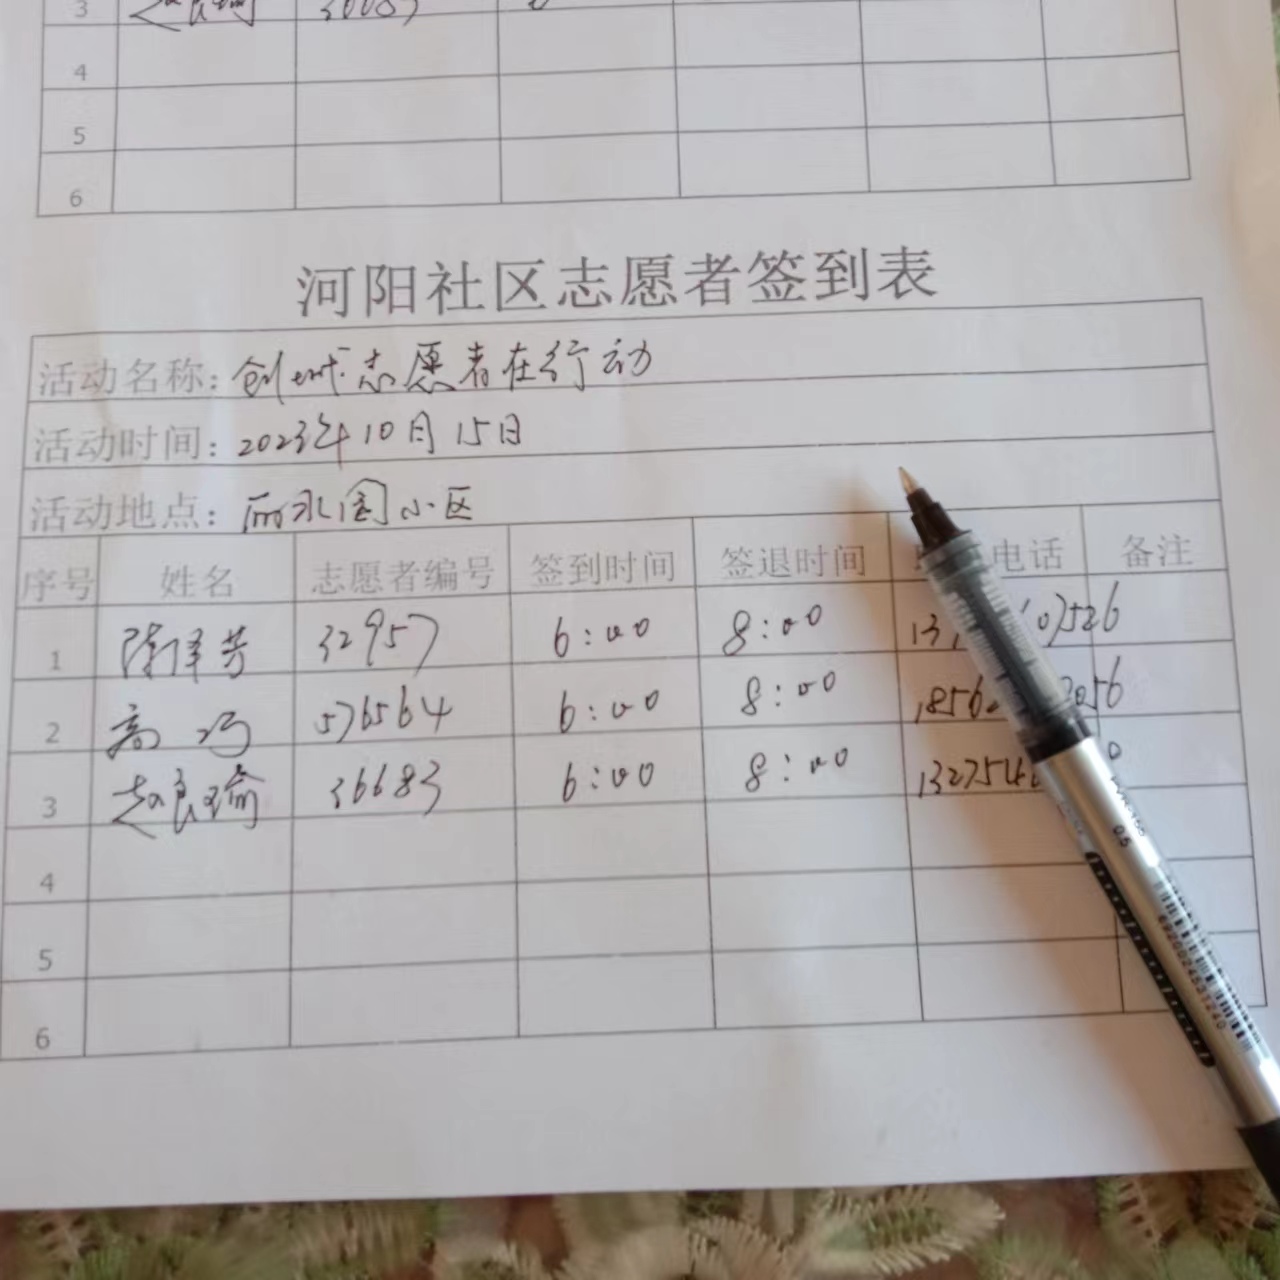 3 赵良瑜 36683
4
5
6
河阳社区志愿者签到表
活动名称：创城志愿者在行动
活动时间：2023年10月15日
活动地点：丽水园小区
序号 姓名 志愿者编号 签到时间 签退时间 电话 备注
1 陈泽芳 32957 6:00 8:00
2 高巧 576564 6:00 8:00
3 赵良瑜 36683 6:00 8:00
4
5
6
0.5